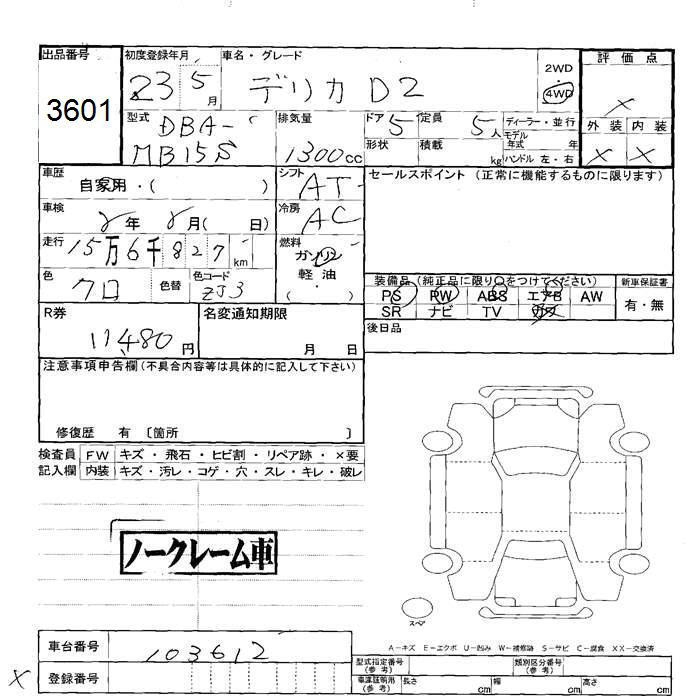 出品番号
3601
初度登録年月 車名・グレード
23 5月 デリカ D2
2WD
4WD
評価点
X
外装 内装
X X
型式
DBA-
MB15S
排気量
1300cc
ドア 定員
5 5人
形状 積載
kg
ディーラー・並行
モデル年式 年
ハンドル 左・右
車歴
自家用・( )
シフト
AT
セールスポイント (正常に機能するものに限ります)
車検
年 月( 日)
冷房
AC
走行
15万6千827km
燃料
ガソリン
軽油
( )
色
クロ
色替
色コード
ZJ3
装備品(純正品に限り〇をつけてください)
PS PW ABS エアB AW
SR ナビ TV カワ
新車保証書
有・無
R券
11,480円
名変通知期限
月 日
後日品
注意事項申告欄(不具合内容等は具体的に記入して下さい)
修復歴 有 〔箇所 〕
検査員 FW キズ・飛石・ヒビ割・リペア跡・×要
記入欄 内装 キズ・汚レ・コゲ・穴・スレ・キレ・破レ
ノークレーム車
スペア
A-キズ E-エクボ U-凹み W-補修跡 S-サビ C-腐食 XX-交換済
車台番号 103612
X 登録番号
型式指定番号(参考) 類別区分番号(参考)
車庫証明用(参考) 長さ cm 幅 cm 高さ cm